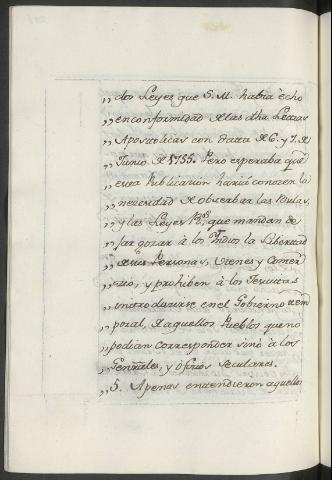 „ dos Leyes que S. M. havia echo
„ en conformidad de las dhas Letras
„ Apostolicas con data de 6. y 7. de
„ Junio de 1755. Pero esperaba qe
„ esta Publicacion haria conocer la
„ necesidad de observar las Bulas,
„ y las Leyes Rs. que mandan de
„ jar gozar à los Indios la Libertad
„ de sus Personas, Vienes y Comer
„ cio, y prohiben à los Jesuitas
„ introducirse en el Gobierno tem
„ poral, de aquellos Pueblos que no
„ podian corresponder sinò à los
„ Genrales, y Ofizios seculares.
„ 5. Apenas entendieron aquellos